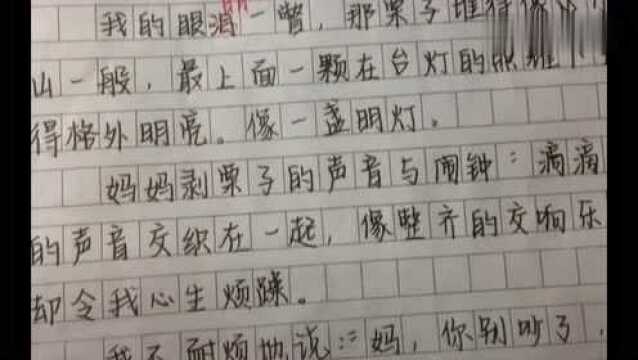 我的眼一瞥，那栗子堆得像
山一般，最上面一颗在台灯的照耀下
得格外明亮。像一盏明灯。
妈妈剥栗子的声音与闹钟：滴滴
的声音交织在一起，像整齐的交响乐
却令我心生烦躁。
我不耐烦地说：“妈，你别吵了，